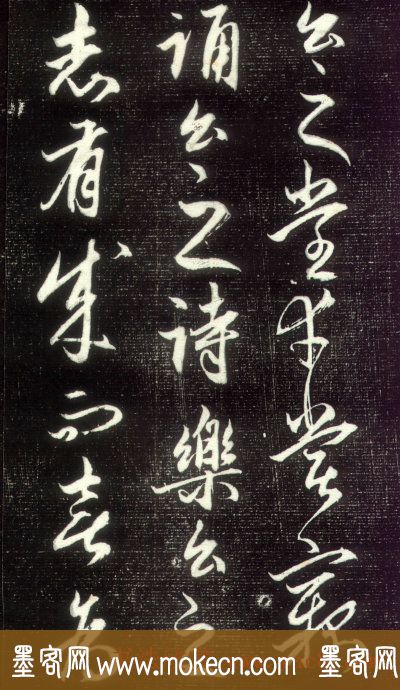 公之堂幸嘗竊
誦公之詩樂公之
志有成而喜為
墨客网 www.mokecn.com 墨客网